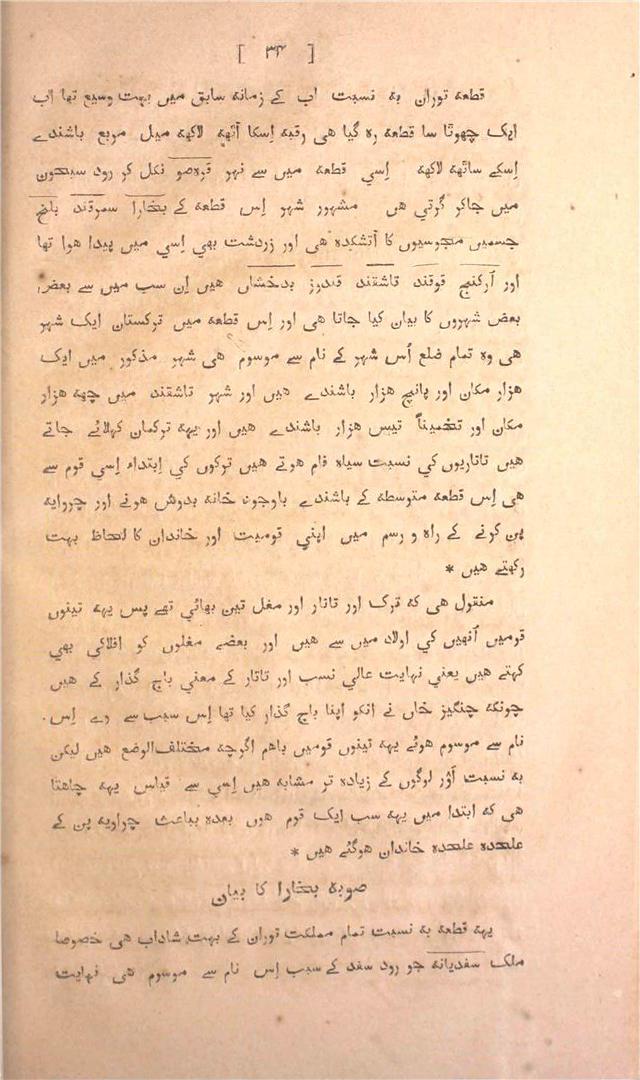 [ ٣٤ ]
قطعہ توران بہ نسبت اب کے زمانہ سابق میں بہت وسیع تھا اب
ایک چھوٹا سا قطعہ رہ گیا ھی رقبہ اِسکا آٹھہ لاکھہ میل مربع باشندے
اِسکے ساٹھہ لاکھہ اِسی قطعہ میں سے نہر قرہ‌صو نکل کر رود سیحون
میں جاکر گرتی ھی مشہور شہر اِس قطعہ کے بخارا سمرقند بلخ
جسمیں مجوسیوں کا آتشکدہ ھی اور زردشت بھی اِسی میں پیدا ھوا تھا
اور اُرگنج قوقند تاشقند قندوز بدخشاں ھیں اِن سب میں سے بعض
بعض شہروں کا بیان کیا جاتا ھی اور اِس قطعہ میں ترکستان ایک شہر
ھی وہ تمام ضلع اُس شہر کے نام سے موسوم ھی شہر مذکور میں ایک
ھزار مکان اور پانچ ھزار باشندے ھیں اور شہر تاشقند میں چھہ ھزار
مکان اور تخمیناً تیس ھزار باشندے ھیں اور یہہ ترکمان کہلائے جاتے
ھیں تاتاریوں کی نسبت سیاہ فام ھوتے ھیں ترکوں کی اِبتداء اِسی قوم سے
ھی اِس قطعہ متوسطہ کے باشندے باوجود خانہ بدوش ھونے اور چروایہ
پن کرنے کے راہ و رسم میں اپنی قومیت اور خاندان کا لحاظ بہت
رکھتے ھیں *
منقول ھی کہ ترک اور تاتار اور مغل تین بھائی تھے پس یہہ تینوں
قومیں اُنھیں کی اولاد میں سے ھیں اور بعضے مغلوں کو افلاکی بھی
کہتے ھیں یعنی نہایت عالی نسب اور تاتار کے معنی باج گذار کے ھیں
چونکہ چنگیز خاں نے انکو اپنا باج گذار کیا تھا اِس سبب سے وے اِس
نام سے موسوم ھوئے یہہ تینوں قومیں باھم اگرچہ مختلف‌الوضع ھیں لیکن
بہ نسبت اَوْر لوگوں کے زیادہ تر مشابہ ھیں اِسی سے قیاس یہہ چاھتا
ھی کہ ابتدا میں یہہ سب ایک قوم ھوں بعدہ بباعث چراویہ پن کے
علحدہ علحدہ خاندان ھوگئے ھیں *
صوبہ بخارا کا بیان
یہہ قطعہ بہ نسبت تمام مملکت توران کے بہت شاداب ھی خصوصا
ملک سغدیانہ جو رود سغد کے سبب اِس نام سے موسوم ھی نہایت